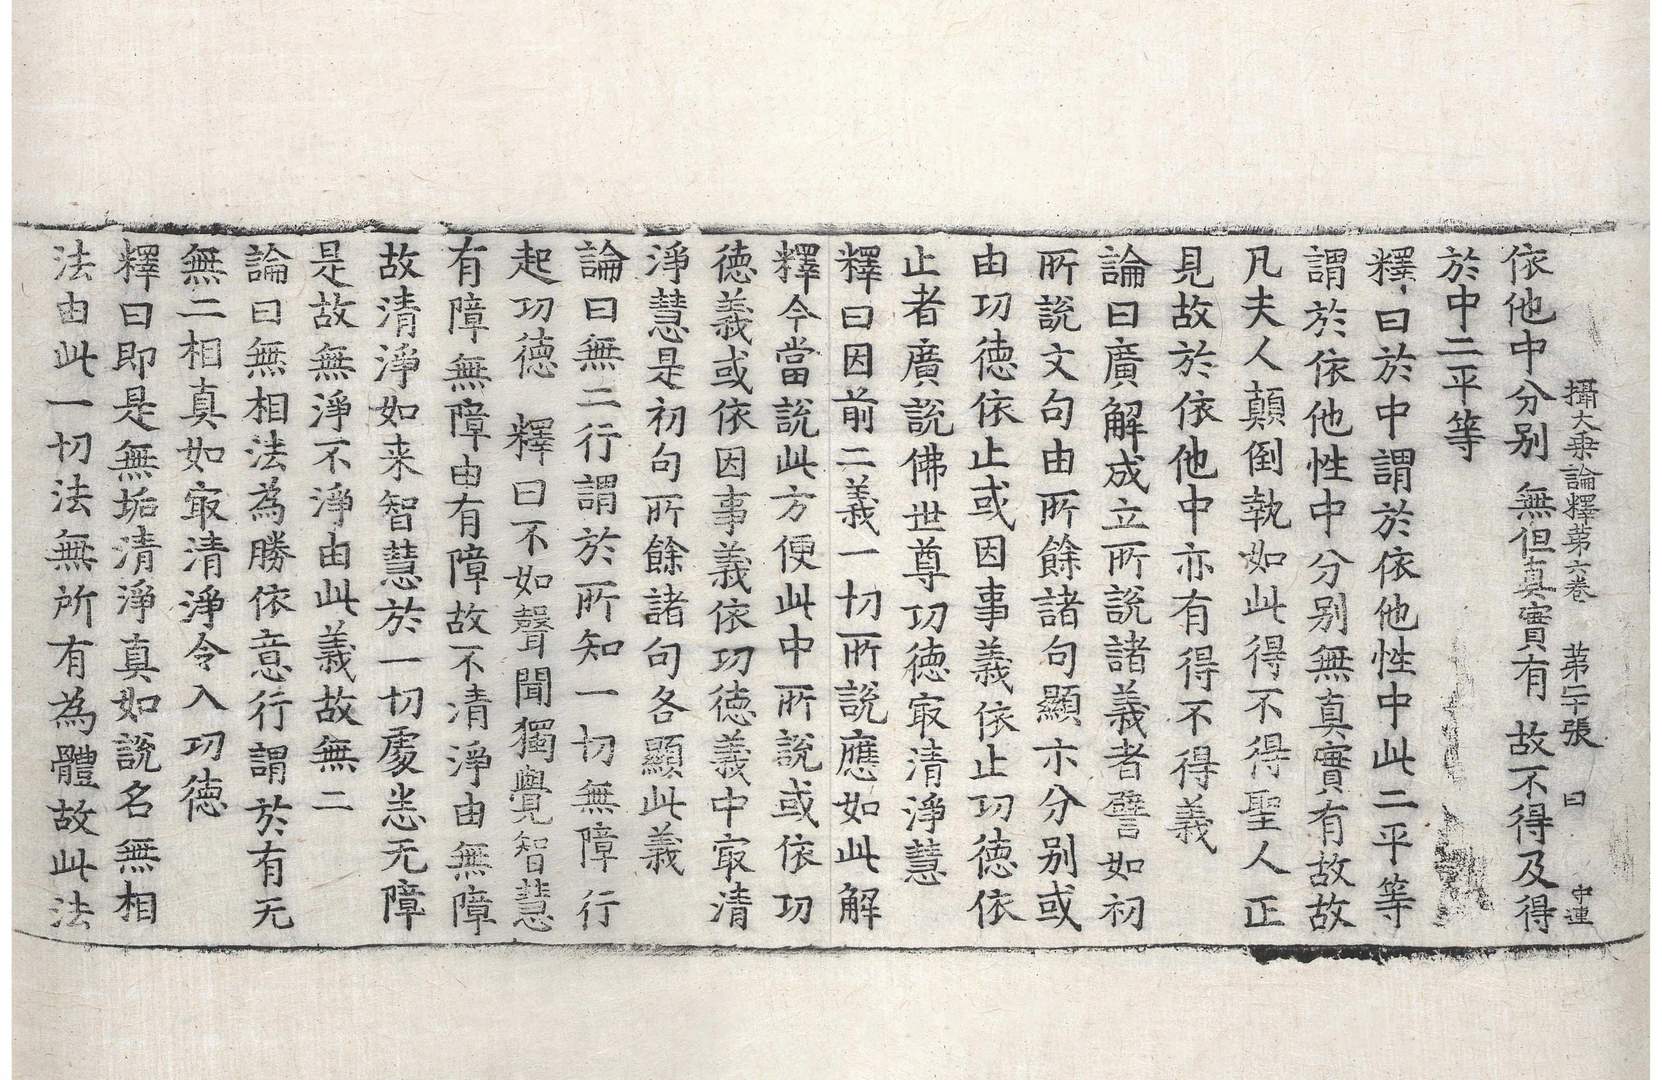 攝大乗論釋苐六巻　苐二十張　曰　守連
依他中分别　無但真實有　故不得及得
於中二平等
釋曰於中謂於依他性中此二平等
謂於依他性中分别無真實有故故
凡夫人顛倒執如此得不得聖人正
見故於依他中亦有得不得義
論曰廣解成立所說諸義者譬如初
所說文句由所餘諸句顯示分别或
由功徳依止或因事義依止功徳依
止者廣說佛世尊功徳㝡清淨慧
釋曰因前二義一切所說應如此解
釋今當說此方便此中所說或依功
徳義或依因事義依功徳義中㝡清
淨慧是初句所餘諸句各顯此義
論曰無二行謂於所知一切無障行
起功徳　釋曰不如聲聞獨覺智慧
有障無障由有障故不清淨由無障
故清淨如来智慧於一切處恙无障
是故無淨不淨由此義故無二
論曰無相法為勝依意行謂於有无
無二相真如㝡清淨令入功徳
釋曰即是無垢清淨真如說名無相
法由此一切法無所有為體故此法